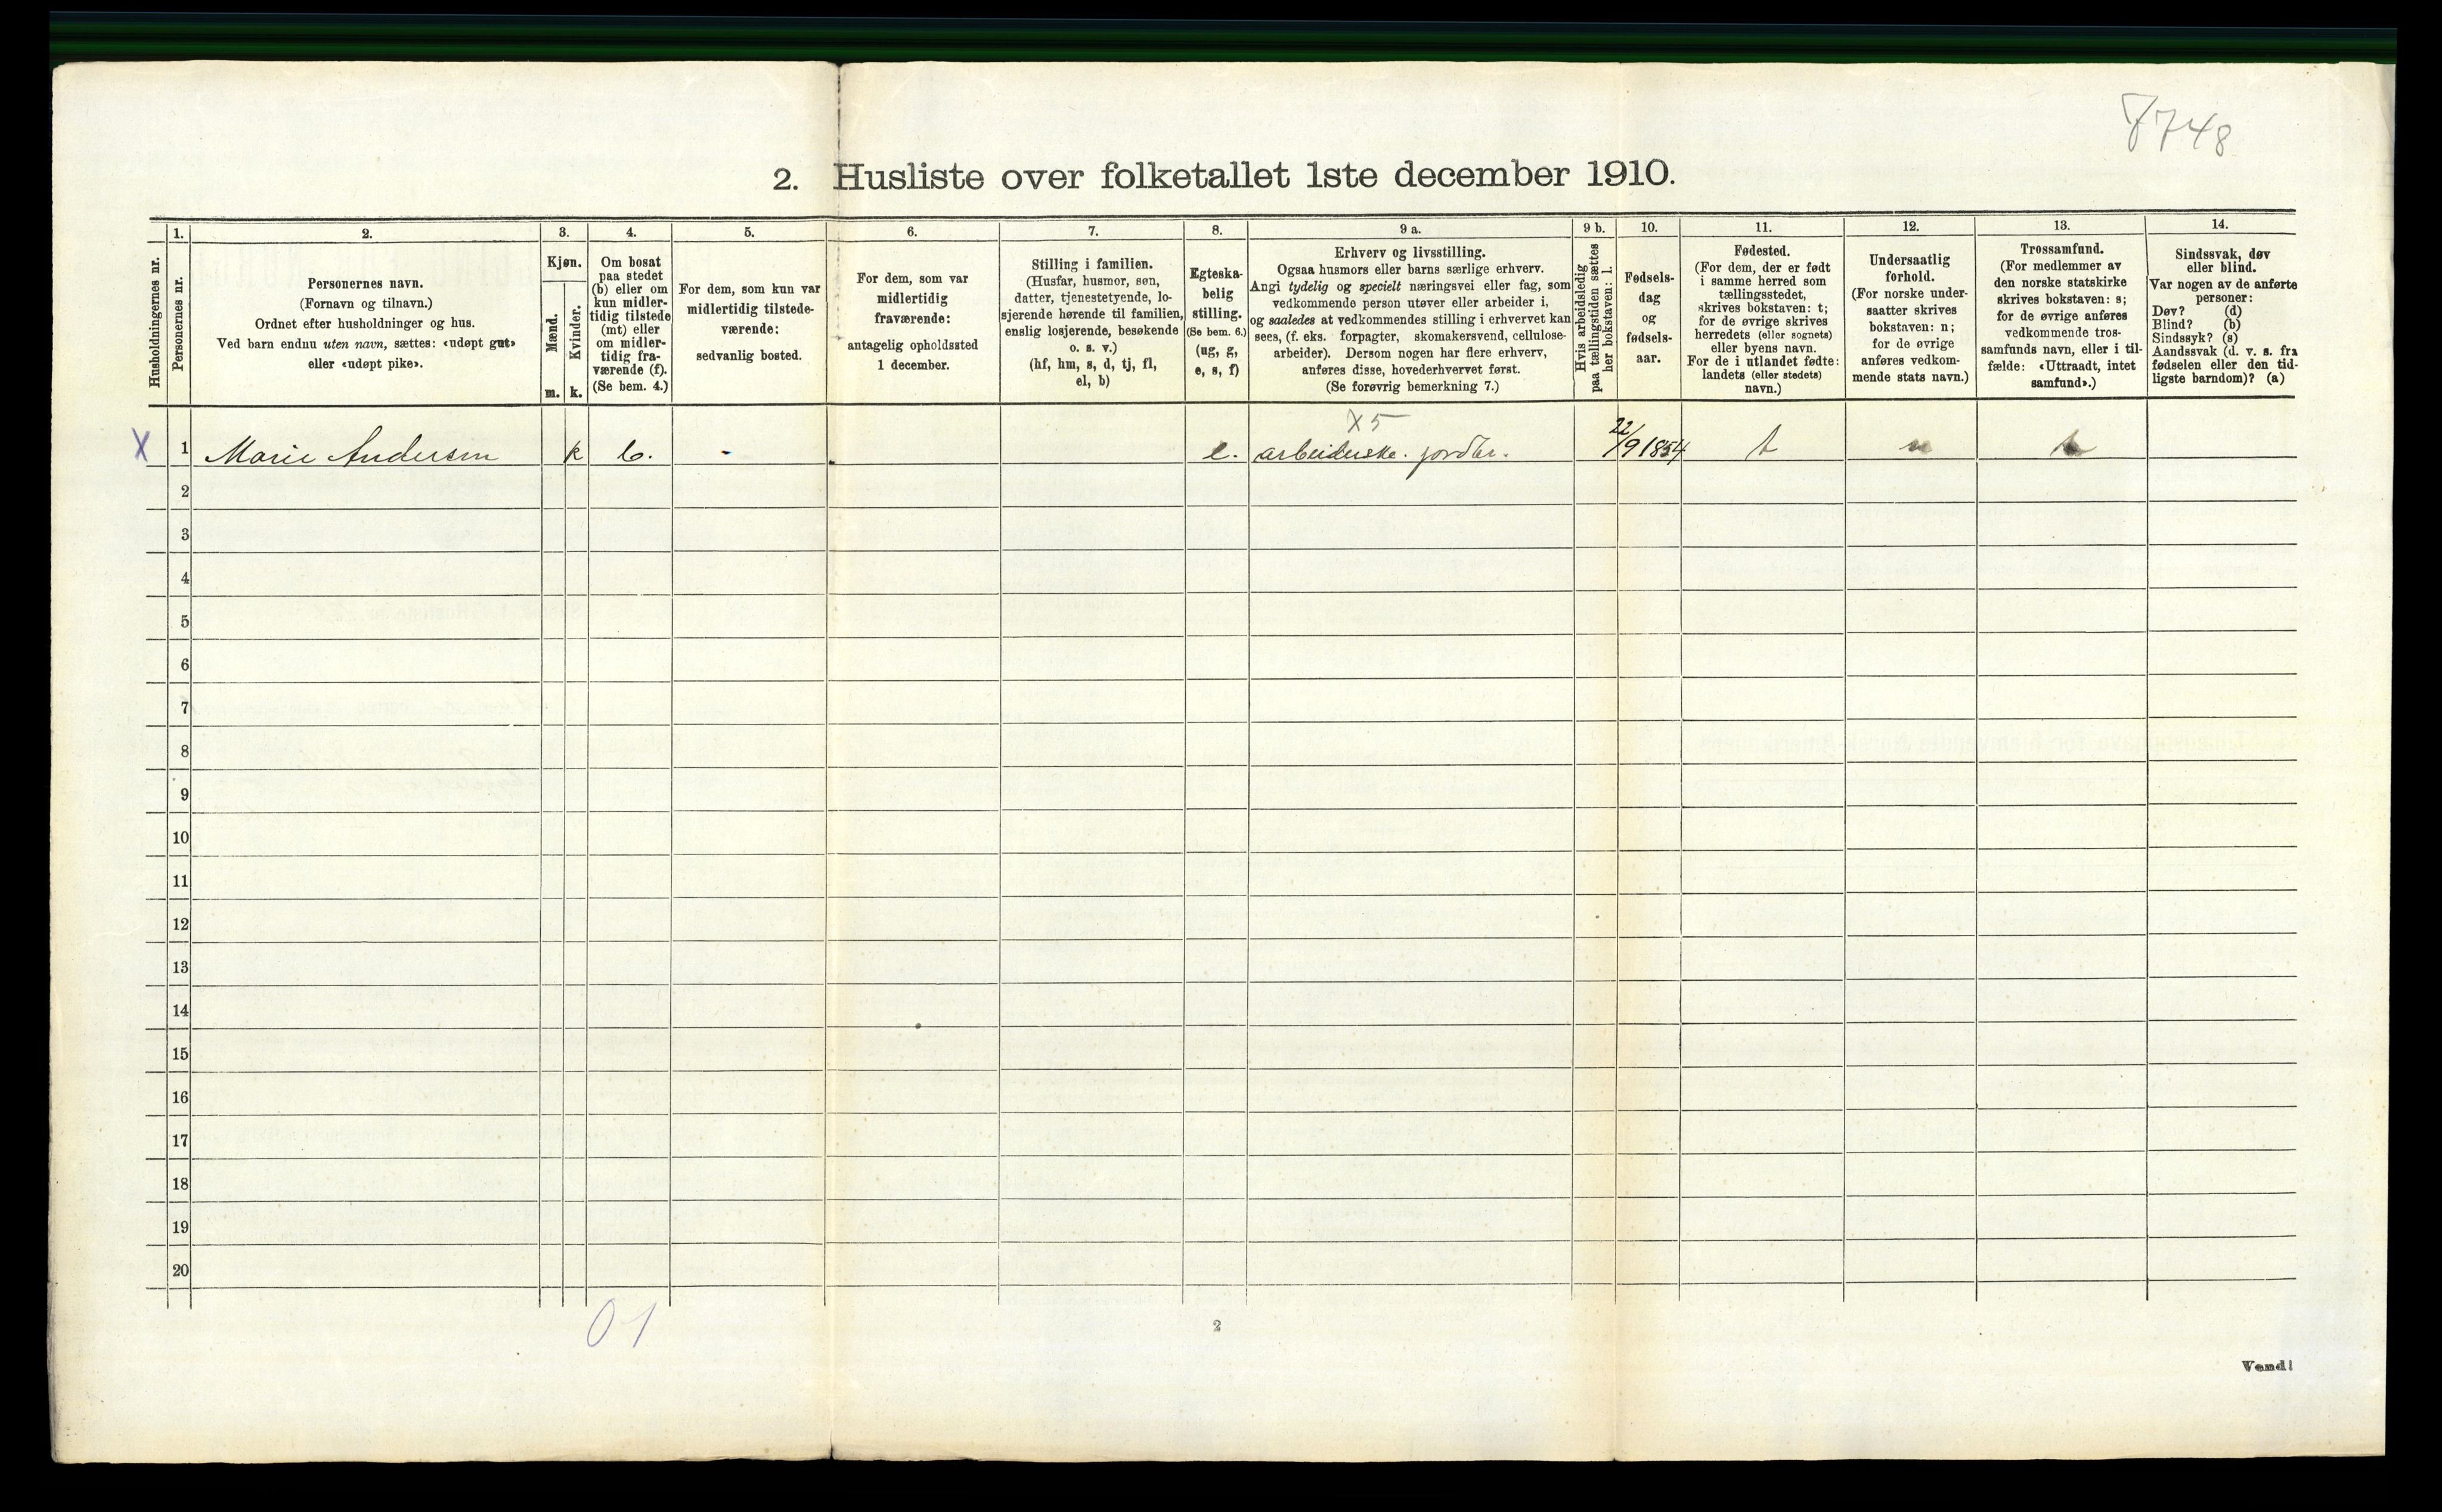 8748
2. Husliste over folketallet 1ste december 1910.
Husholdningernes nr.
1.
Personernes nr.
2.
Personernes navn.
(Fornavn og tilnavn.)
Ordnet efter husholdninger og hus.
Ved barn endnu uten navn, sættes: «udøpt gut»
eller «udøpt pike».
3.
Kjøn.
Mænd.
Kvinder.
m. k.
4.
Om bosat
paa stedet
(b) eller om
kun midler-
tidig tilstede
(mt) eller
om midler-
tidig fra-
værende (f).
(Se bem. 4.)
5.
For dem, som kun var
midlertidig tilstede-
værende:
sedvanlig bosted.
6.
For dem, som var
midlertidig
fraværende:
antagelig opholdssted
1 december.
7.
Stilling i familien.
(Husfar, husmor, søn,
datter, tjenestetyende, lo-
sjerende hørende til familien,
enslig losjerende, besøkende
o. s. v.)
(hf, hm, s, d, tj, fl,
el, b)
8.
Egteska-
belig
stilling.
(Se bem. 6.)
(ug, g,
e, s, f)
9 a.
Erhverv og livsstilling.
Ogsaa husmors eller barns særlige erhverv.
Angi tydelig og specielt næringsvei eller fag, som
vedkommende person utøver eller arbeider i,
og saaledes at vedkommendes stilling i erhvervet kan
sees, (f. eks. forpagter, skomakersvend, cellulose-
arbeider). Dersom nogen har flere erhverv,
anføres disse, hovederhvervet først.
(Se forøvrig bemerkning 7.)
9 b.
Hvis arbeidsledig
paa tællingstiden sættes
her bokstaven: l.
10.
Fødsels-
dag
og
fødsels-
aar.
11.
Fødested.
(For dem, der er født
i samme herred som
tællingsstedet,
skrives bokstaven: t;
for de øvrige skrives
herredets (eller sognets)
eller byens navn.
For de i utlandet fødte:
landets (eller stedets)
navn.)
12.
Undersaatlig
forhold.
(For norske under-
saatter skrives
bokstaven: n;
for de øvrige
anføres vedkom-
mende stats navn.)
13.
Trossamfund.
(For medlemmer av
den norske statskirke
skrives bokstaven: s;
for de øvrige anføres
vedkommende tros-
samfunds navn, eller i til-
fælde: «Uttraadt, intet
samfund».)
14.
Sindssvak, døv
eller blind.
Var nogen av de anførte
personer:
Døv? (d)
Blind? (b)
Sindssyk? (s)
Aandssvak (d. v. s. fra
fødselen eller den tid-
ligste barndom)? (a)
X5
X 1 Marie Andersen k b. - e. arbeiderske. jordbr. 22/9 1854 t n
2
3
4
5
6
7
8
9
10
11
12
13
14
15
16
17
18
19
20
01
2
Vend!